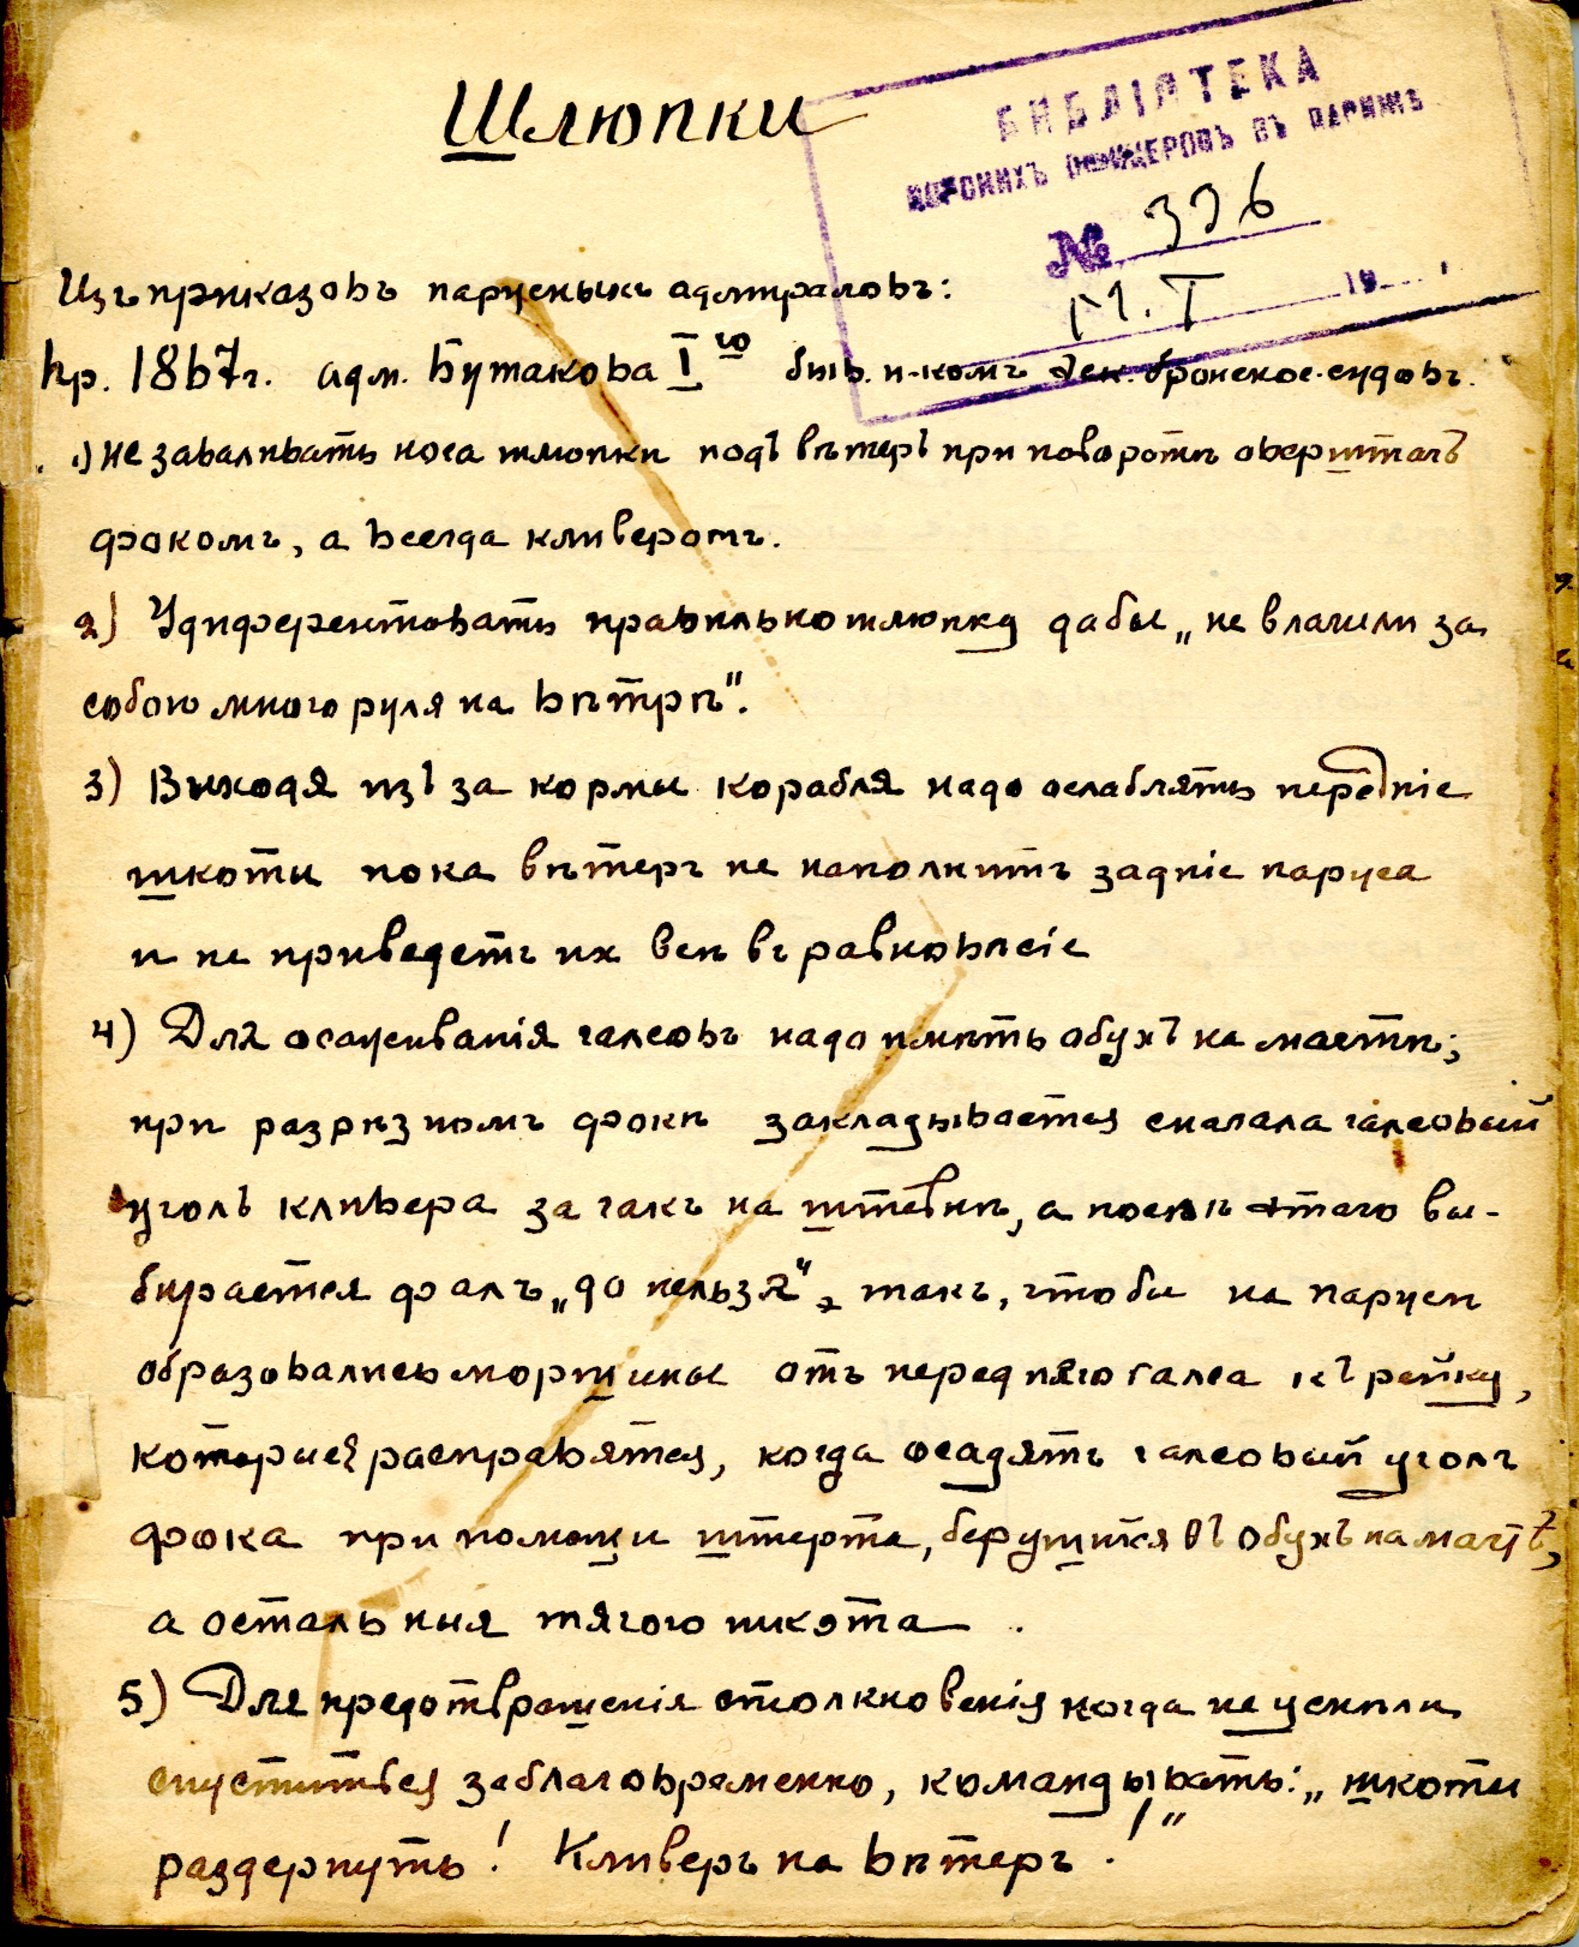 Шлюпки
БИБЛІОТЕКА
МОРСКИХЪ ОФИЦЕРОВЪ ВЪ ПАРИЖѢ
№ 336
М.Т 19
Изъ приказовъ парусныхъ адмираловъ:
Пр. 1867г. адм. Бутакова I го быв. н-комъ эск. броненос. судовъ.
1) Не заваливать носа шлюпки подъ вѣтеръ при поворотѣ оверштагъ
фокомъ, а всегда кливеромъ.
2) Удиферентовать правильно шлюпку дабы „не влачили за
собою много руля на вѣтрѣ".
3) Выходя изъ за кормы корабля надо ослаблять передніе
шкоты пока вѣтеръ не наполнитъ задніе паруса
и не приведетъ их всѣ въ равновѣсіе
4) Для осаусиванія галсовъ надо имѣть обухъ на мачтѣ;
при разрѣзномъ фокѣ закладывается сначала галсовый
уголъ кливера за гакъ на штевнѣ, а послѣ этого вы-
бирается фалъ „до нельзя", такъ, чтобы на парусѣ
образовались морщины отъ передняго галса къ рейку,
которые расправятся, когда осадятъ галсовый уголъ
фока при помощи штерта, берущимся въ обухъ на мачтѣ,
а остальныя тягою шкота.
5) Для предотвращенія столкновенія когда не успѣли
спуститься заблаговременно, командывать: „шкоты
раздернуть! Кливеръ на вѣтеръ!"